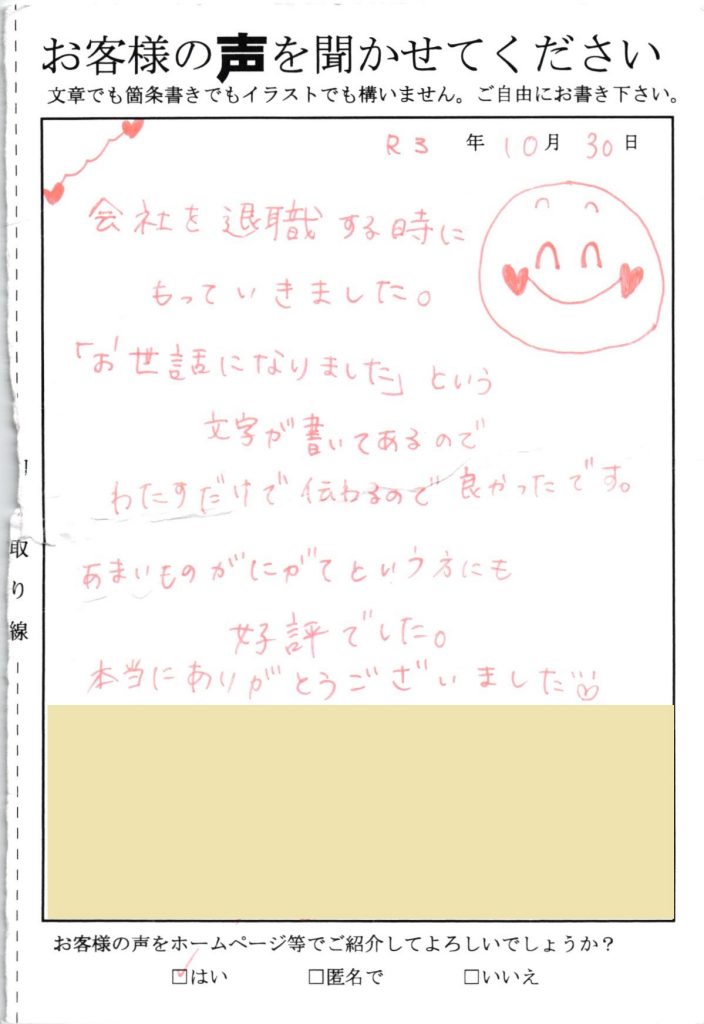 お客様の声を聞かせてください
文章でも箇条書きでもイラストでも構いません。ご自由にお書き下さい。
R3 年 10月 30日
会社を退職する時に
もっていきました。
「お世話になりました」という
文字が書いてあるので
わたすだけで伝わるので良かったです。
あまいものがにがてという方にも
好評でした。
本当にありがとうございました
取り線
お客様の声をホームページ等でご紹介してよろしいでしょうか？
☑はい □匿名で □いいえ